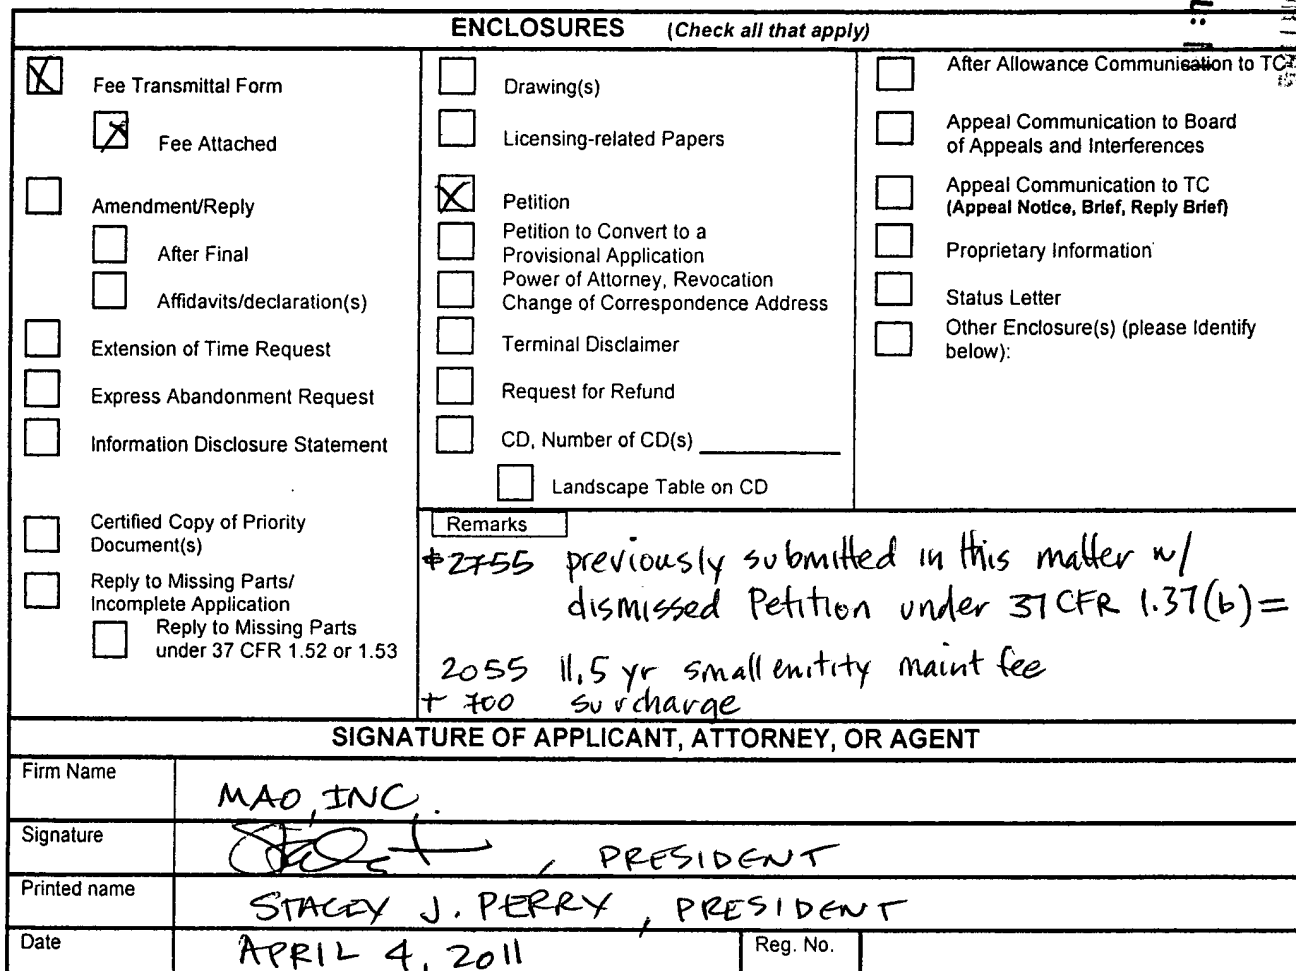 ENCLOSURES (Check all that apply)
Fee Transmittal Form
Fee Attached
Amendment/Reply
After Final
Affidavits/declaration(s)
Extension of Time Request
Express Abandonment Request
Information Disclosure Statement
Certified Copy of Priority
Document(s)
Reply to Missing Parts/
Incomplete Application
Reply to Missing Parts
under 37 CFR 1.52 or 1.53
Drawing(s)
Licensing-related Papers
Petition
Petition to Convert to a
Provisional Application
Power of Attorney, Revocation
Change of Correspondence Address
Terminal Disclaimer
Request for Refund
CD, Number of CD(s)
Landscape Table on CD
After Allowance Communication to TC
Appeal Communication to Board
of Appeals and Interferences
Appeal Communication to TC
(Appeal Notice, Brief, Reply Brief)
Proprietary Information
Status Letter
Other Enclosure(s) (please Identify
below):
Remarks
$2755 previously submitted in this matter w/
dismissed Petition under 37 CFR 1.37(b)=
2055 11.5 yr small enitity maint fee
+ 700 surcharge
SIGNATURE OF APPLICANT, ATTORNEY, OR AGENT
Firm Name
MAO, INC.
Signature
, PRESIDENT
Printed name
STACEY J. PERRY, PRESIDENT
Date
APRIL 4, 2011
Reg. No.